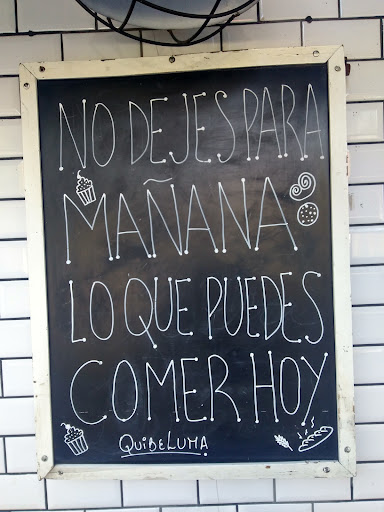 NO DEJES PARA
MAÑANA
LO QUE PUEDES
COMER HOY
QUIBELUMA